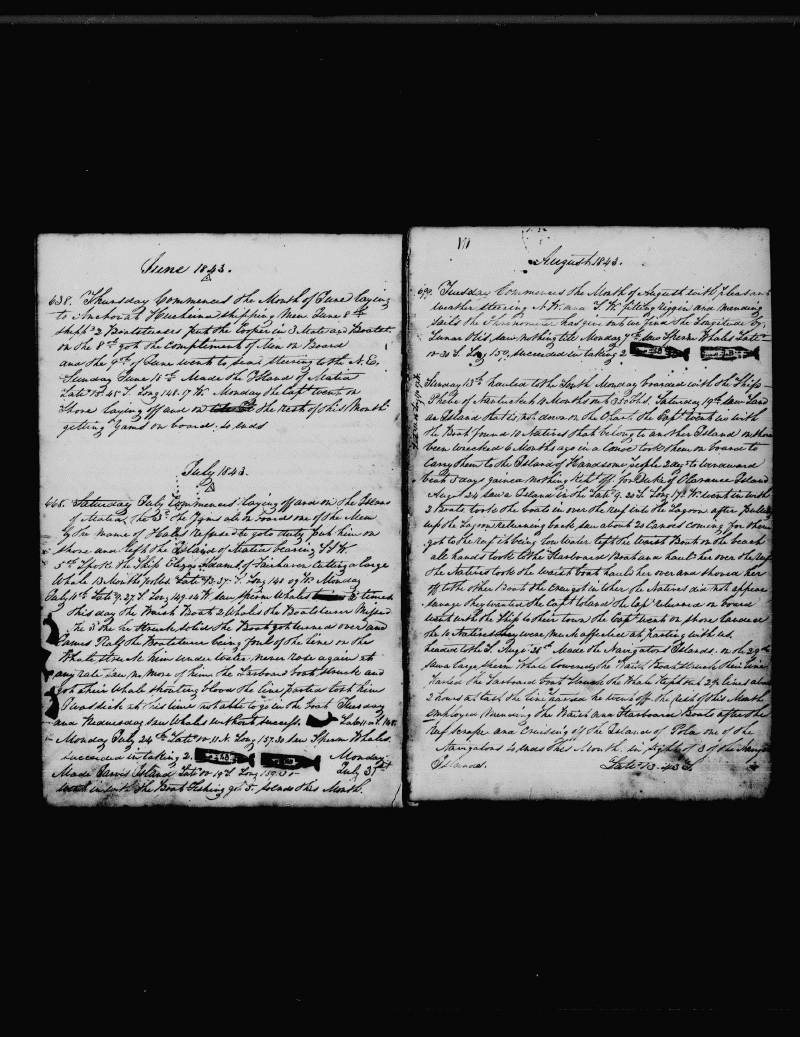 June 1843.
638. Thursday Commences the Month of June laying
to Anchor at Hueheina shipping Men June 8th
shipt 2 Boatsteerers put the Cooper in 3 Mate and Boatst
on the 8th got the Compliment of Men on Board
and the 9th of June went to Sea Steering to the N. E.
Sunday June 18th Made the Island of Matia
Late 15.45 S. Long 148.17 W. Monday the Capt went on
Shore laying off and on the rest of this Month
getting Yams on board. So ends
July 1843.
668. Saturday July Commences laying off and on the Island
of Matia the 3d the Yams all on board one of the Men
by the name of Hales Refused to go to duty put him on
shore and left the Island of Matia bearing
5th Spoke the Ship Eliza Adams of Fairhaven cutting a large
Whale 13 Months Late 13.37 S. Long 148.07 W. Monday
July 10th Late 9.27 S. Long 149.14 W. saw Sperm Whales 2 times
this day the Waist Boat 2 Whales the Boatsteerer Missed
the 3d he Struck solid the Boat got turned over and
James Ralf the Boatsteerer being foul of the line on the
Whale struck him under water never rose again at
any rate saw no more of him the Larboard boat Struck and
got their Whale spouting blood the line parted lost him
sick at this time not able to go in the boat Tuesday
and Wednesday saw Whales without success. Late 11
Monday July 24th Late 10.11 N. Long 157.20 saw Sperm Whales
succeeded in taking 2. Monday
Made Jarvis Island Late 10.19 S. Long 159.35 July 31st
went in with the Boat Fishing got 5. so ends this Month.
VII
August 1843.
699. Tuesday Commences the Month of August with pleasant
weather steering N. W. and S. W. fitting rigin and mending
sails the Chronometer has run out we find the Longitude by
Lunar Obs. saw nothing till Monday 7th saw Sperm Whales Late
10.30 S. Long 159, succeeded in taking 2
Sunday 13th hauled to the South Monday boarded with the Ship
of Nantucket 19 Months out 350 bbls. Saturday 19th saw Land
an Island that is not down on the Chart the Capt went in with
the Boat found 10 Natives that belong to another Island on shore
been wrecked 6 Months ago in a Canoe took them on board to
carry them to the Island of Handsome people 2 days to windward
beat 3 days gained nothing kept off for Duke of Clarance Island
Aug 24 saw a Island in the Late 9.23 S. Long 17 W. went in with
2 Boats took the boats in over the reef into the Lagoon after pulling
up the Lagoon returning back saw about 20 Canoes coming for them
got to the reef it being low water left the waist Boat on the beach
all hands took to the Starboard Boat and hauled her over the reef
the Natives took the waist boat hauled her over and shoved her
off to the other Boat the crew got in to her the Natives did not appear
savage they wanted the Capt to land the Capt returned on board
went with the Ship to their town the Capt went on shore landed
the 10 Natives they were much affected at parting with us.
headed to the S. Aug. 28th Made the Navigators Islands. on the 29th
saw large Sperm Whale lowered, the Waist Boat struck their line
parted the Larboard boat struck the Whale kept out 2 lines about
2 hours at last the line parted he went off. the rest of this Month
employed Mending the Waist and Starboard Boats after the
Reef scrape and Cruising off the Islands of Pola one of the
Navigators so ends this Month. in sight of 3 of the Navigators
Islands. Late 13.43 S.